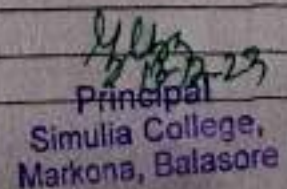 Principal
Simulia College,
Markona, Balasore